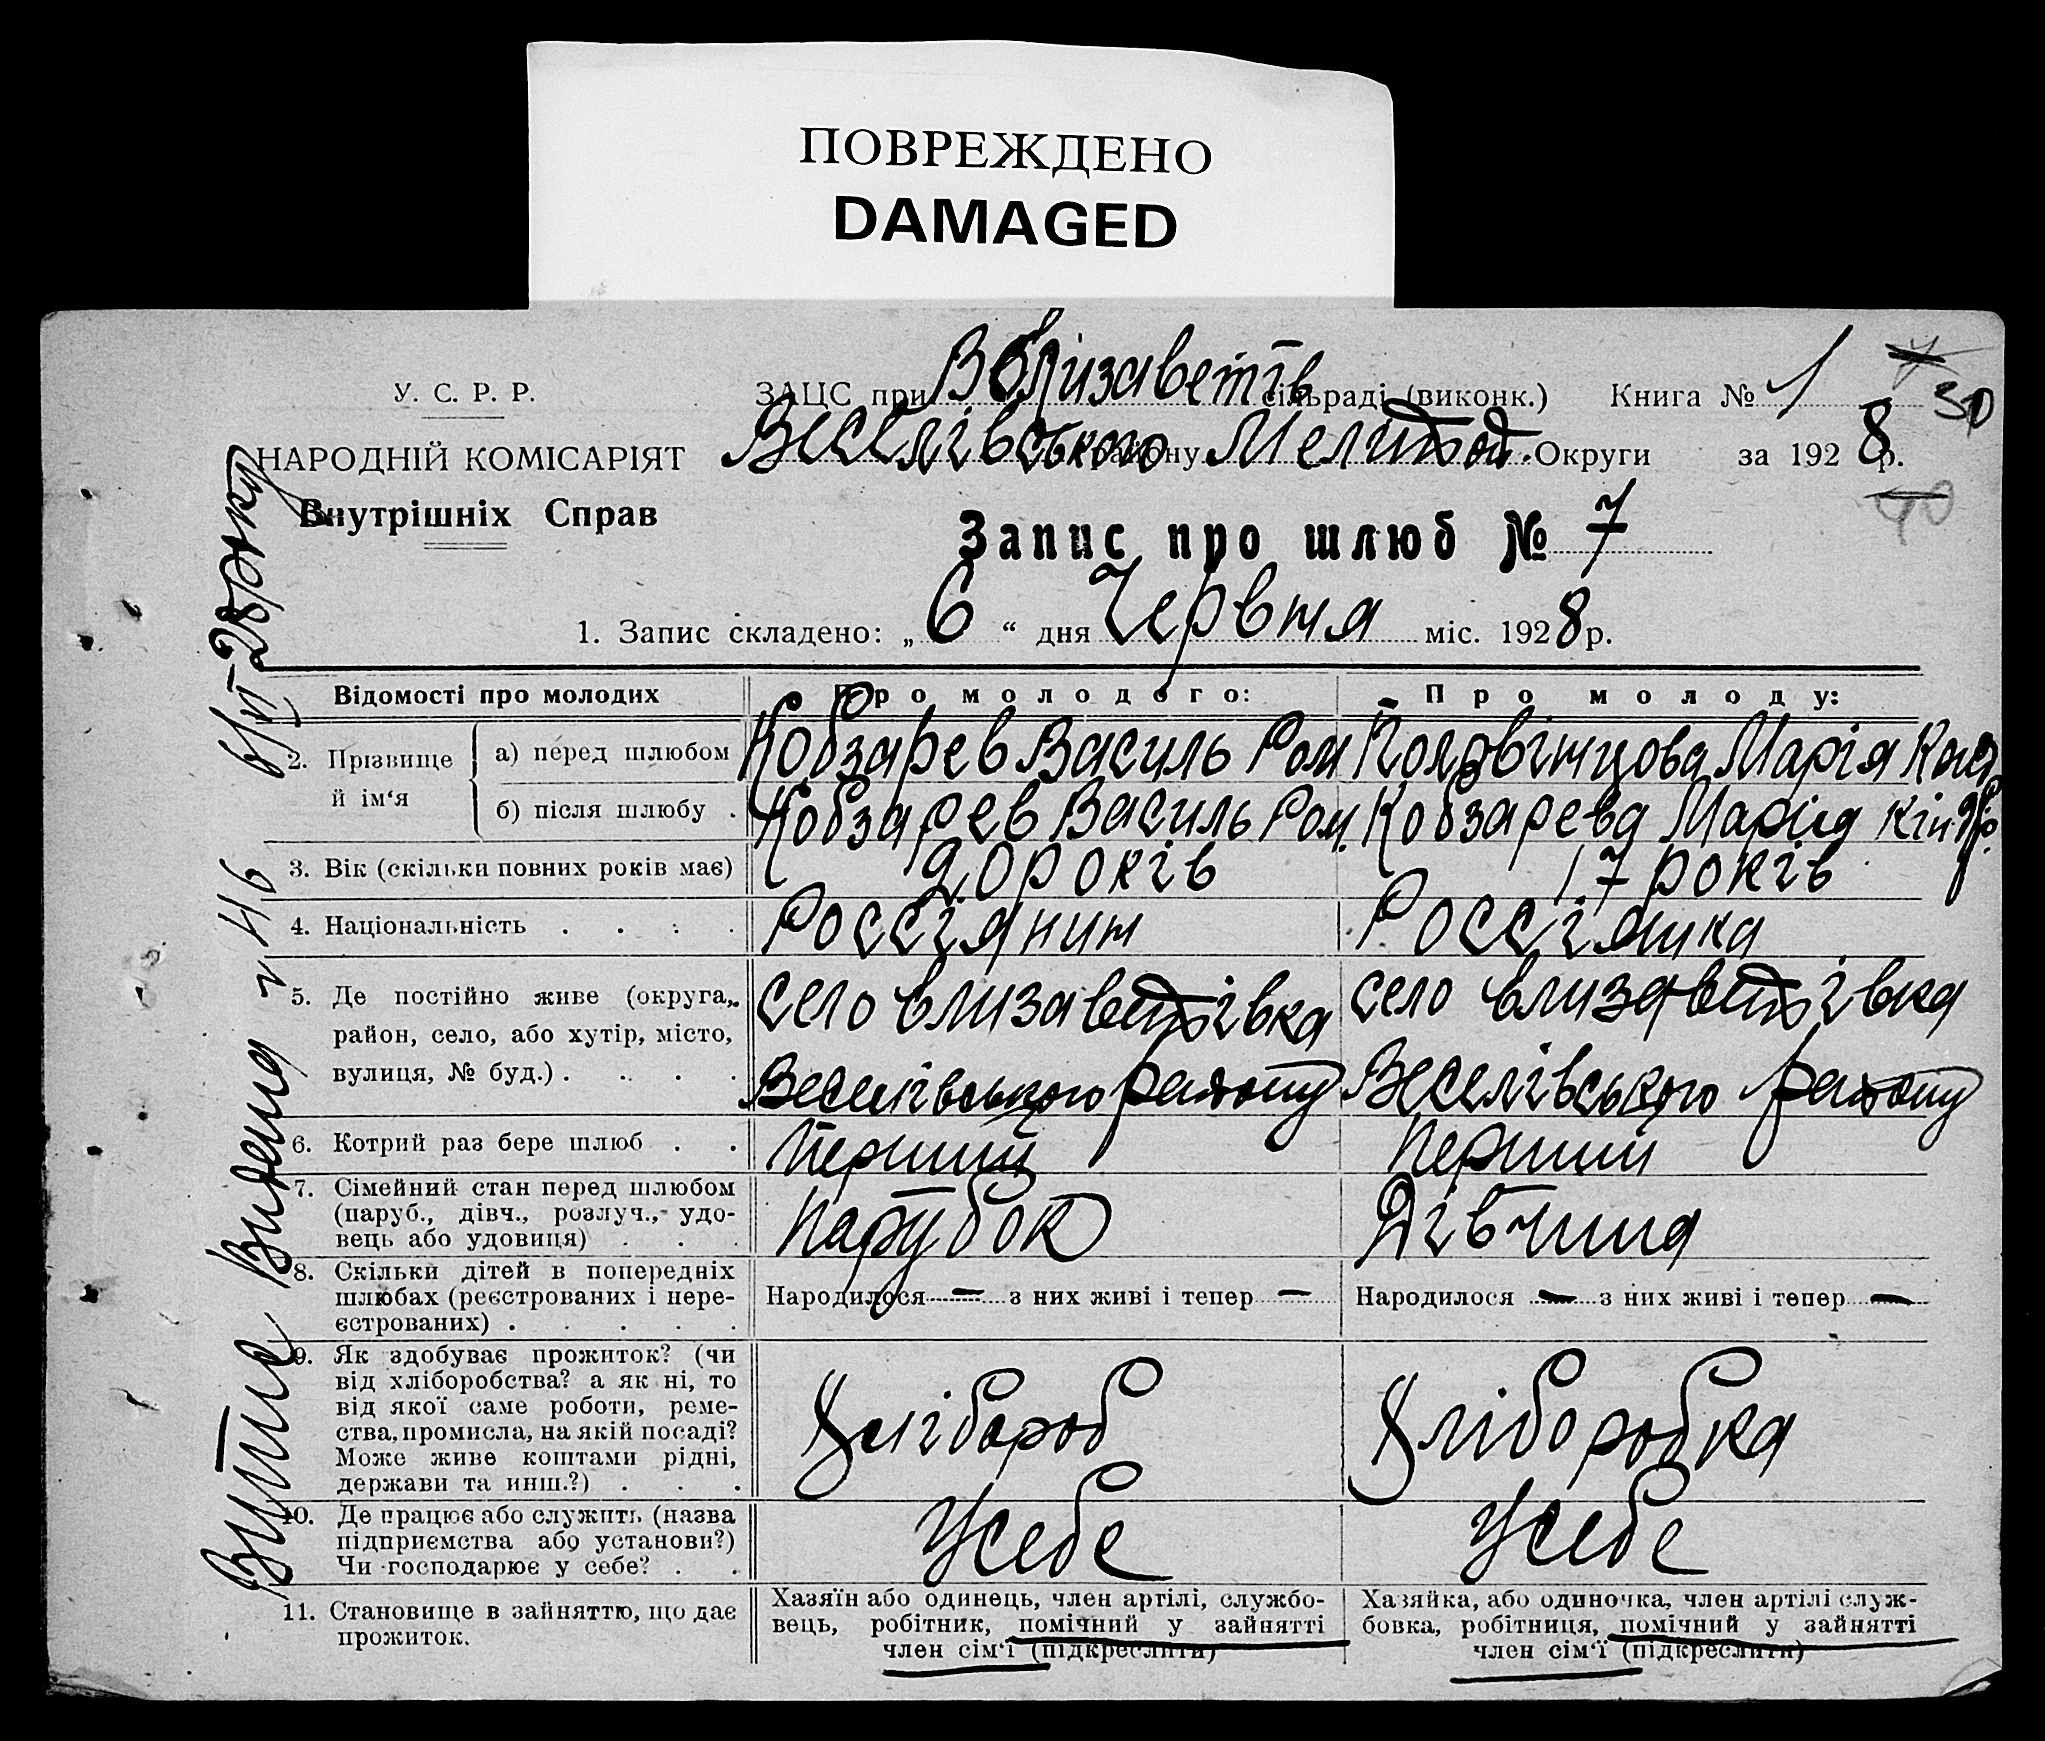 ПОВРЕЖДЕНО
DAMAGED
У. С. Р. Р.
НАРОДНІЙ КОМІСАРІЯТ
Внутрішніх Справ
ЗАЦС при сільраді (виконк.) Книга № 1 30
Веселівського району Мелитоп. Округи за 1928 р.
40
Запис про шлюб № 7
1. Запис складено: „ 6 “ дня Червня міс. 1928 р.
Відомості про молодих
Про молодого:
Про молоду:
2. Прізвище й ім‘я
а) перед шлюбом
Кобзарев Василь Ром
Марія
б) після шлюбу .
Кобзарев Василь Ром.
Кобзарева Марія
3. Вік (скільки повних років має)
20 років
17 років
4. Національність . . . .
Россіянин
Россіянка
5. Де постійно живе (округа,
район, село, або хутір, місто,
вулиця, № буд.) . . . .
село Єлизаветівка
Веселівського району
село Єлизаветівка
Веселівського району
6. Котрий раз бере шлюб . .
Перший
Перший
7. Сімейний стан перед шлюбом
(паруб., дівч., розлуч., удо-
вець або удовиця) . . .
Парубок
Дівчина
8. Скільки дітей в попередніх
шлюбах (реєстрованих і нере-
єстрованих) . . . . .
Народилося — з них живі і тепер —
Народилося — з них живі і тепер —
9. Як здобуває прожиток? (чи
від хліборобства? а як ні, то
від якої саме роботи, реме-
ства, промисла, на якій посаді?
Може живе коштами рідні,
держави та инш.?) . . .
Хлібороб
Хліборобка
10. Де працює або служить (назва
підприємства або установи?)
Чи господарює у себе? . .
У себе
У себе
11. Становище в зайняттю, що дає
прожиток.
Хазяїн або одинець, член артілі, службо-
вець, робітник, помічний у зайнятті
член сім‘ї (підкреслити)
Хазяйка, або одиночка, член артілі служ-
бовка, робітниця, помічний у зайнятті
член сім‘ї (підкреслити)
Витяг Видано 46 6/VI 28 року